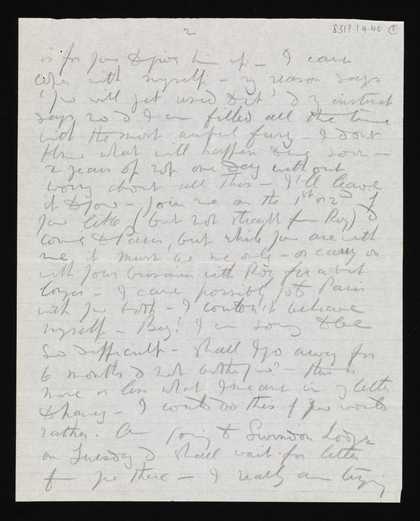 8317.1.4.40
2
is for you to give him up - I can't
cope with myself - my reason says
'you will get used to it' & my instinct
says no & I am filled all the time
with the most awful fury - I don't
know what will happen
2 years of not one day without
worry about all this - I'll leave
it to you - join me on the 1st or 2nd if
you like (but not straight from Roy) &
come to Paris, but while you are with
me it must be me only - or carry on
with your with Roy for a bit
longer - I can't possibly
with you both - I couldn't behave
myself - I am sorry to be
so difficult - shall I go away for
6 months & not bother you - this is
more or less what I meant in my letter
to - I would do this if you would
rather. Am going to Swindon Lodge
on Tuesday & shall wait for letter
from you there - I really am trying